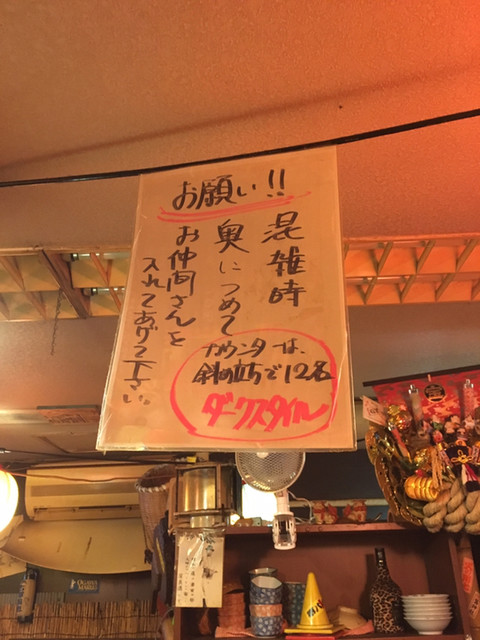 お願い!!
混雑時
奥につめて
お仲間さんを
入れてあげて下さい。
カウンターは、
斜め立ちで12名
ダークスタイル